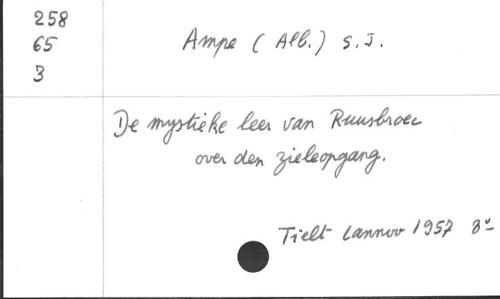 258
65
3
Ampe (Alb.) S.J.
De mystieke leer van Ruusbroec
over den zieleopgang.
Tielt Lannoo 1957 8°